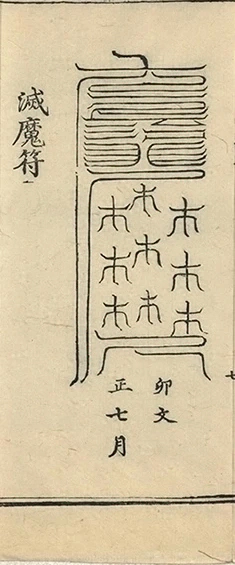 七
卯文
正七月
滅魔符